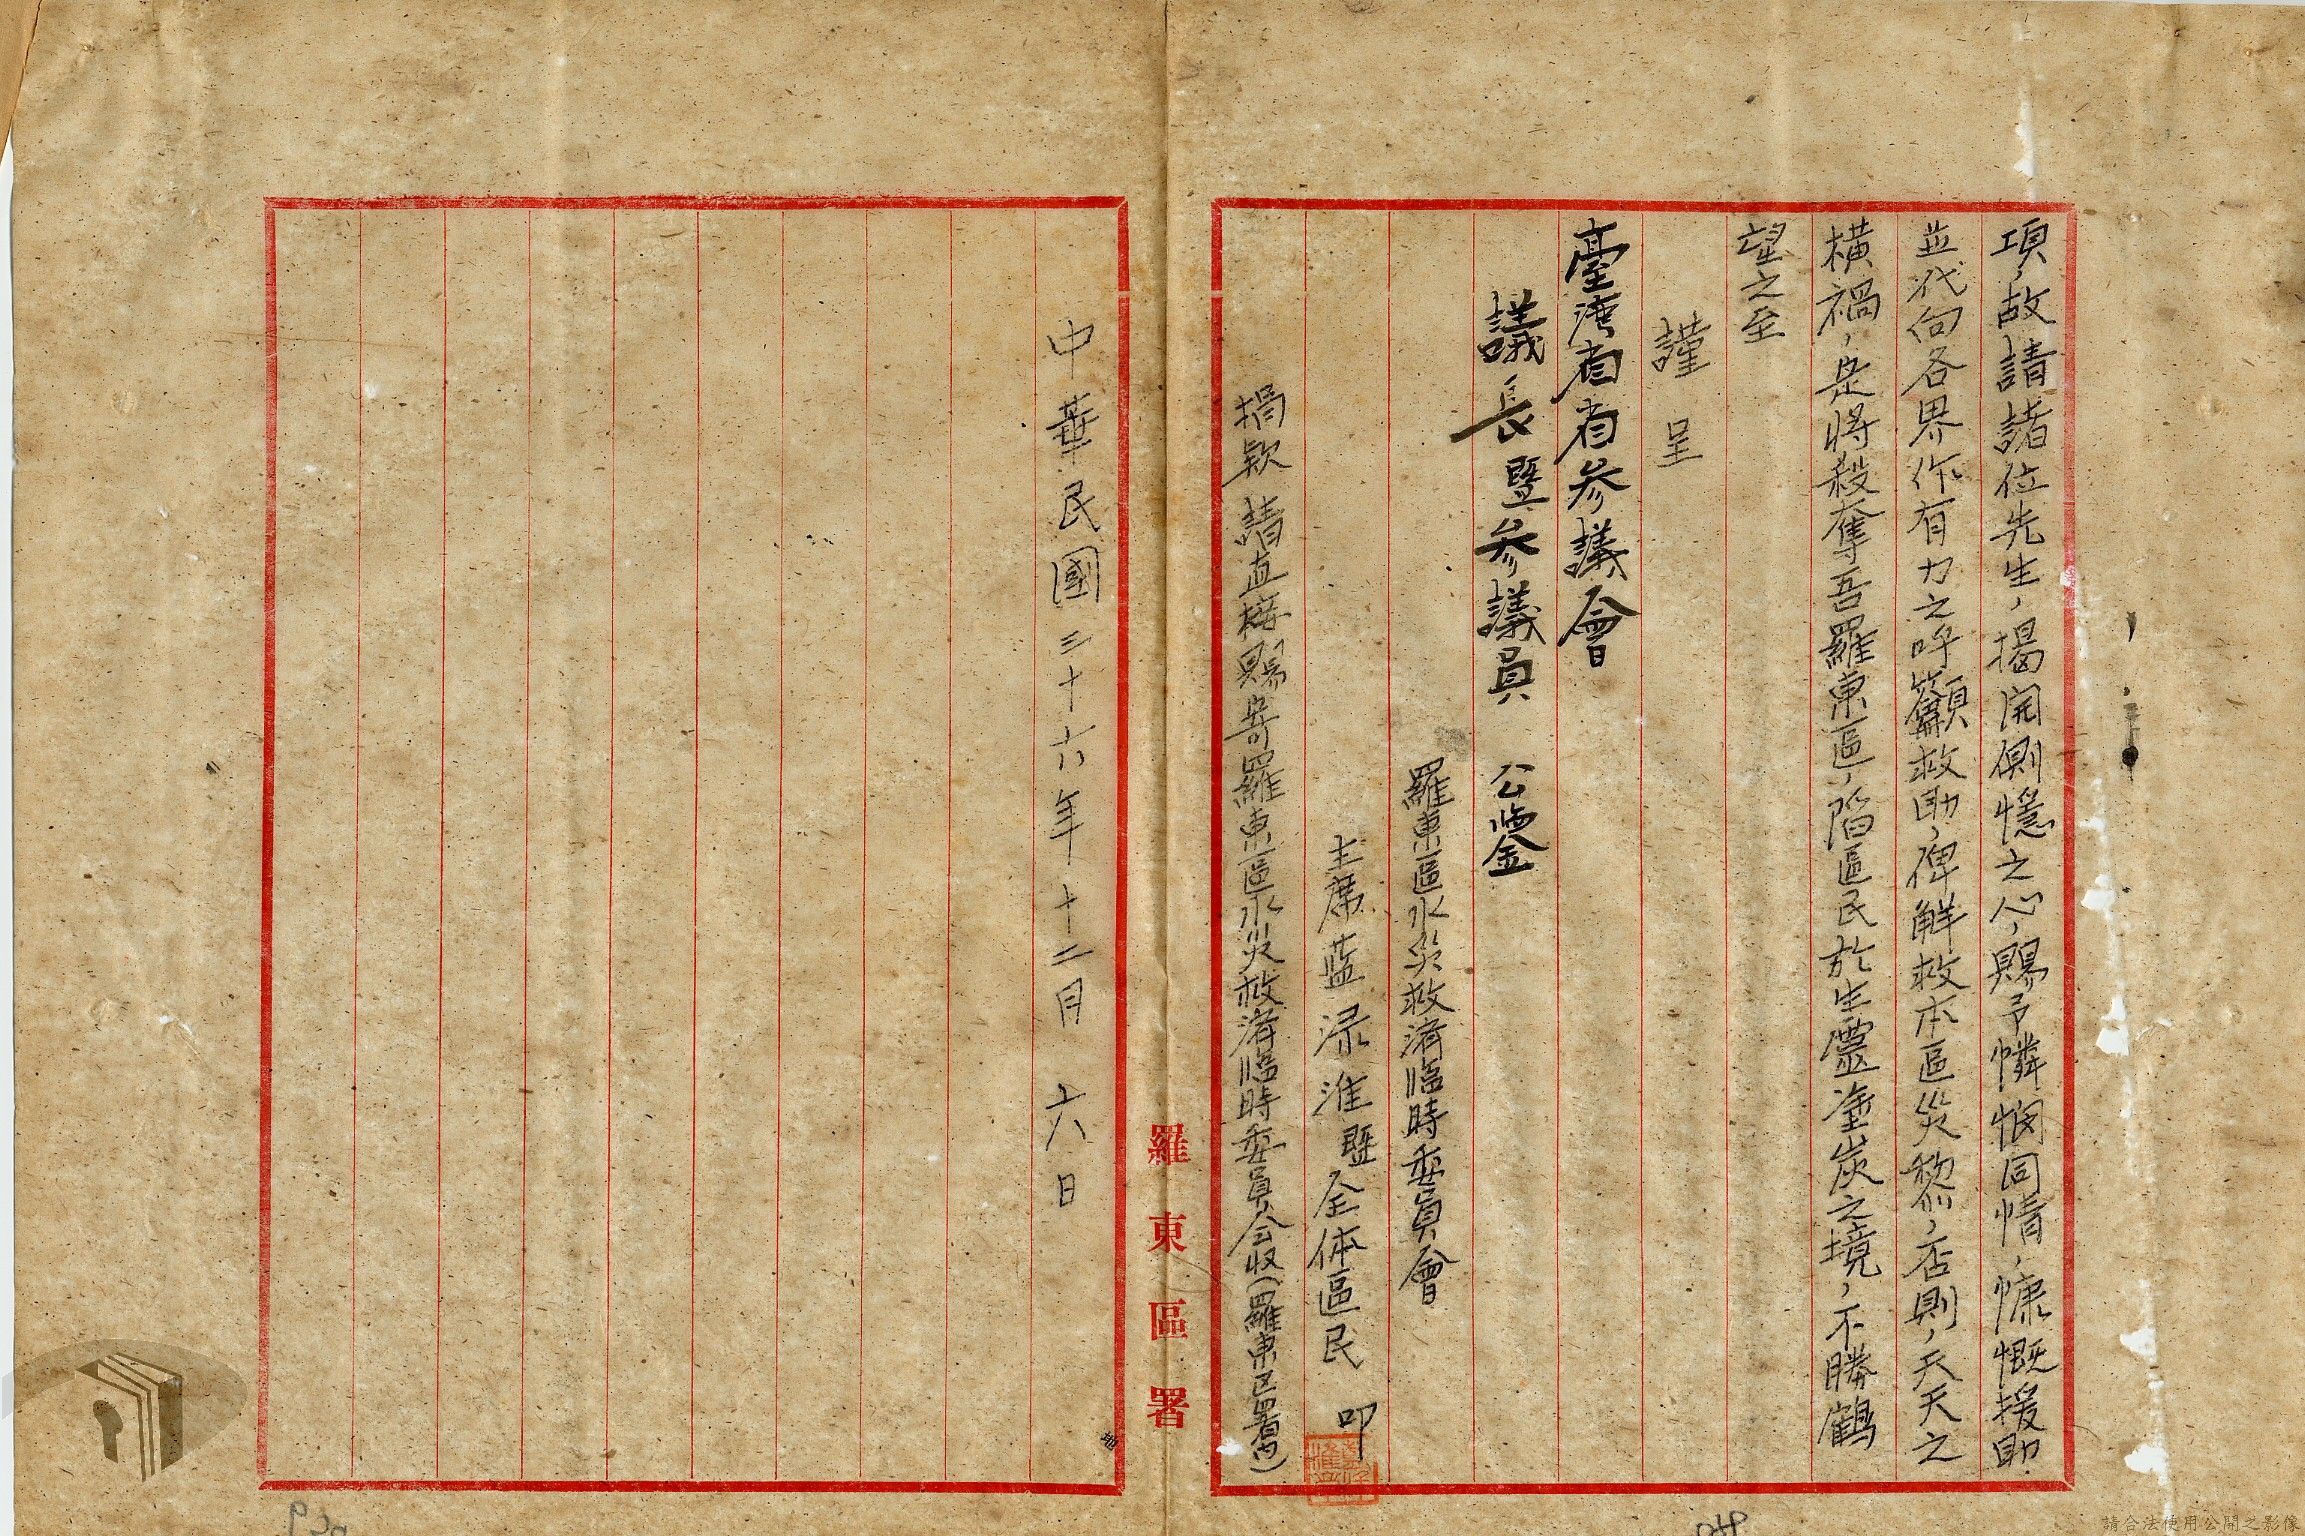 項，故請諸位先生，揭開惻隱之心，賜予憐憫同情，慷慨援助．
並代向各界作有力之呼籲救助，俾解救本區災黎，否則，天天之
橫禍，是將殺奪吾羅東區，陷區民於生靈塗炭之境，不勝鶴
望之至
謹呈
臺湾省省参議會
議長暨参議員　公鑒
羅東區水災救済臨時委員會
主席藍渌淮暨全体區民　叩
捐款請直接賜寄羅東區水災救済臨時委員会收(羅東区署內)
羅東區署
中華民國三十六年十二月　六日
地
請合法使用公開之影像